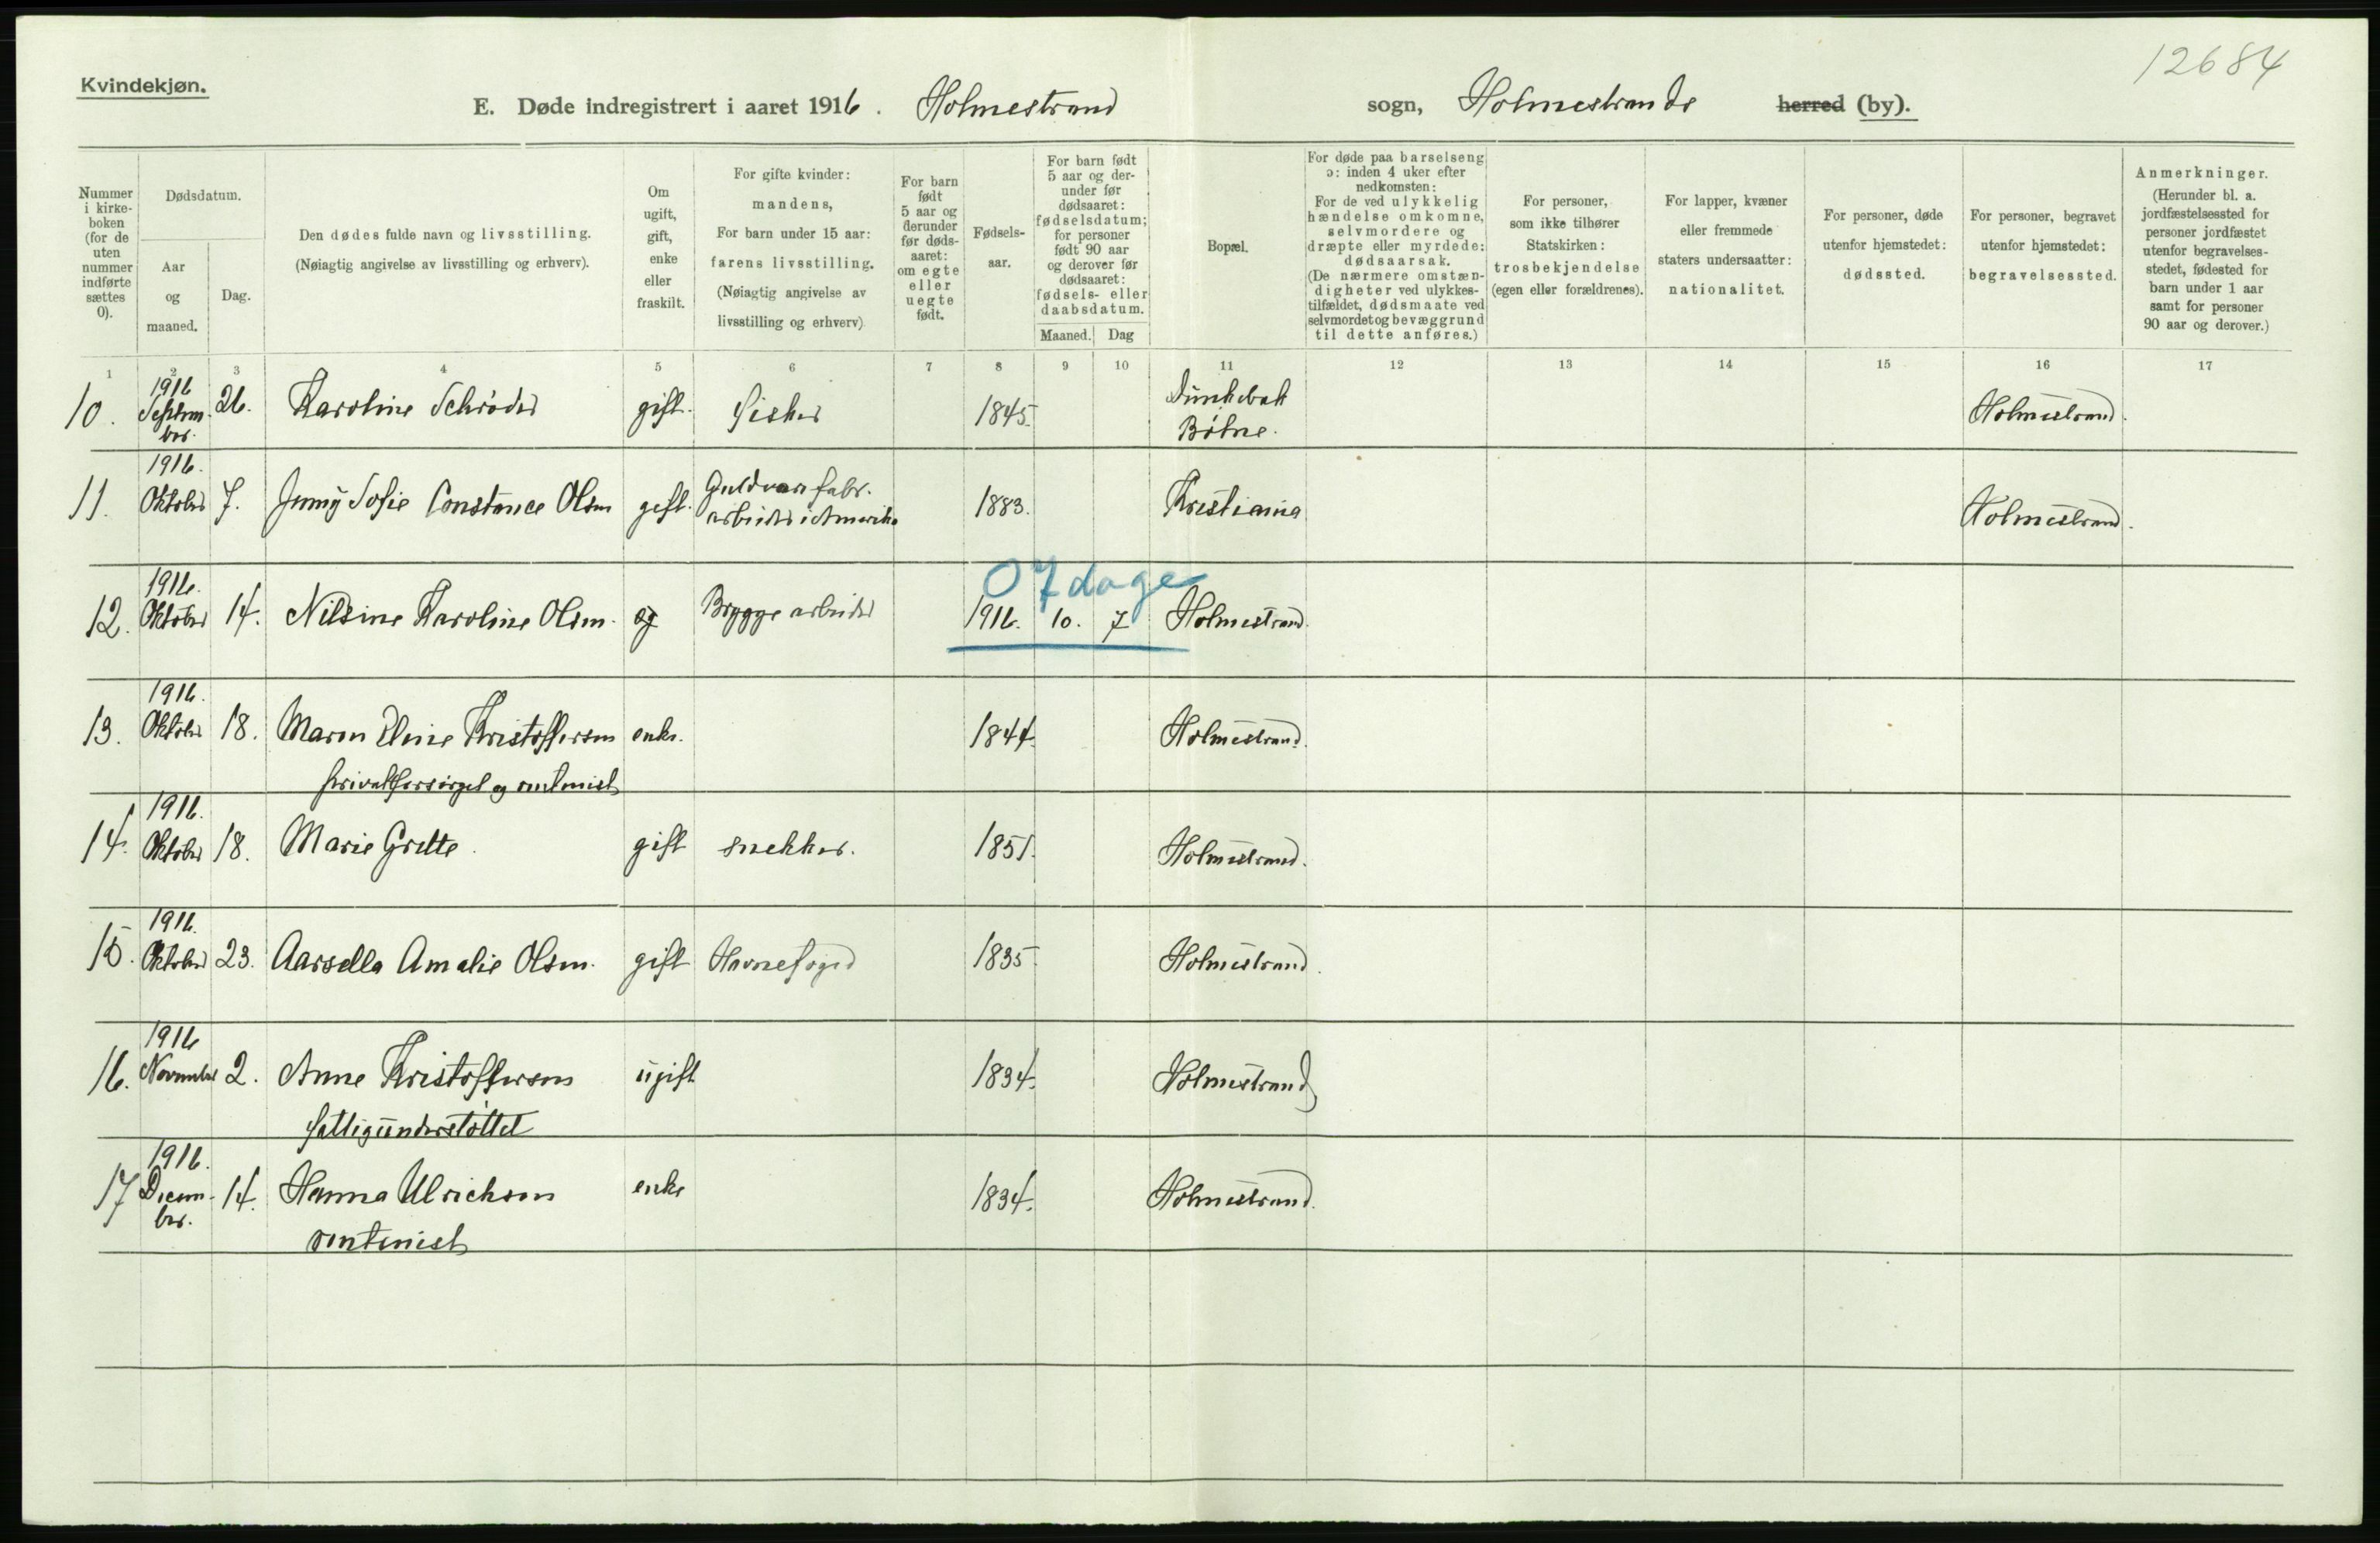 12684
Kvindekjøn.
E. Døde indregistrert i aaret 1916. Holmestrand sogn, Holmestrands herred (by).
Nummer i kirkeboken (for de uten nummer indførte sættes 0).
Dødsdatum.
Aar og maaned.
Dag.
Den dødes fulde navn og livsstilling.
(Nøiagtig angivelse av livsstilling og erhverv).
Om ugift, gift, enke eller fraskilt.
For gifte kvinder: mandens, For barn under 15 aar: farens livsstilling. (Nøiagtig angivelse av livsstilling og erhverv)
For barn født 5 aar og derunder før dødsaaret: om egte eller uegte født.
Fødselsaar.
For barn født 5 aar og derunder før dødsaaret: fødselsdatum; for personer født 90 aar og derover før dødsaaret: fødsels- eller daabsdatum.
Maaned. Dag
Bopæl.
For døde paa barselseng ɔ: inden 4 uker efter nedkomsten: For de ved ulykkelig hændelse omkomne, selvmordere og dræpte eller myrdede: dødsaarsak. (De nærmere omstændigheter ved ulykkestilfældet, dødsmaate ved selvmordet og bevæggrund til dette anføres.)
For personer, som ikke tilhører Statskirken: trosbekjendelse (egen eller forældrenes).
For lapper, kvæner eller fremmede staters undersaatter: nationalitet.
For personer, døde utenfor hjemstedet: dødssted.
For personer, begravet utenfor hjemstedet: begravelsessted.
Anmerkninger. (Herunder bl. a. jordfæstelsessted for personer jordfæstet utenfor begravelsesstedet, fødested for barn under 1 aar samt for personer 90 aar og derover.)
1 2 3 4 5 6 7 8 9 10 11 12 13 14 15 16 17
10. 1916 September. 26. Karoline Schrøder gift. Fisker 1845. Botne. Holmestrand.
11. 1916. Oktober 7. Jenny Sofie Constance Olsen gift. Guldvarefabr. arbeider i Amerika 1883. Kristiania Holmestrand.
0 7 dage
12. 1916. Oktober 14. Nilsine Karoline Olsen. eg Brygge arbeider 1916. 10. 7 Holmestrand.
13. 1916. Oktober 18. Maren Eline Kristoffersen enke. 1844. Holmestrand.
privatforsørget og rentenist
14. 1916. Oktober 18. Marie Gritte. gift snekker. 1851. Holmestrand.
15. 1916. Oktober 23. Aarsella Amalie Olsen. gift Havnefoged 1835. Holmestrand.
16. 1916 November 2. Anne Kristoffersen ugift 1834. Holmestrand
fattigunderstøttet
17 1916. December. 14. Hanna Ulrichsen enke 1834. Holmestrand.
rentenist